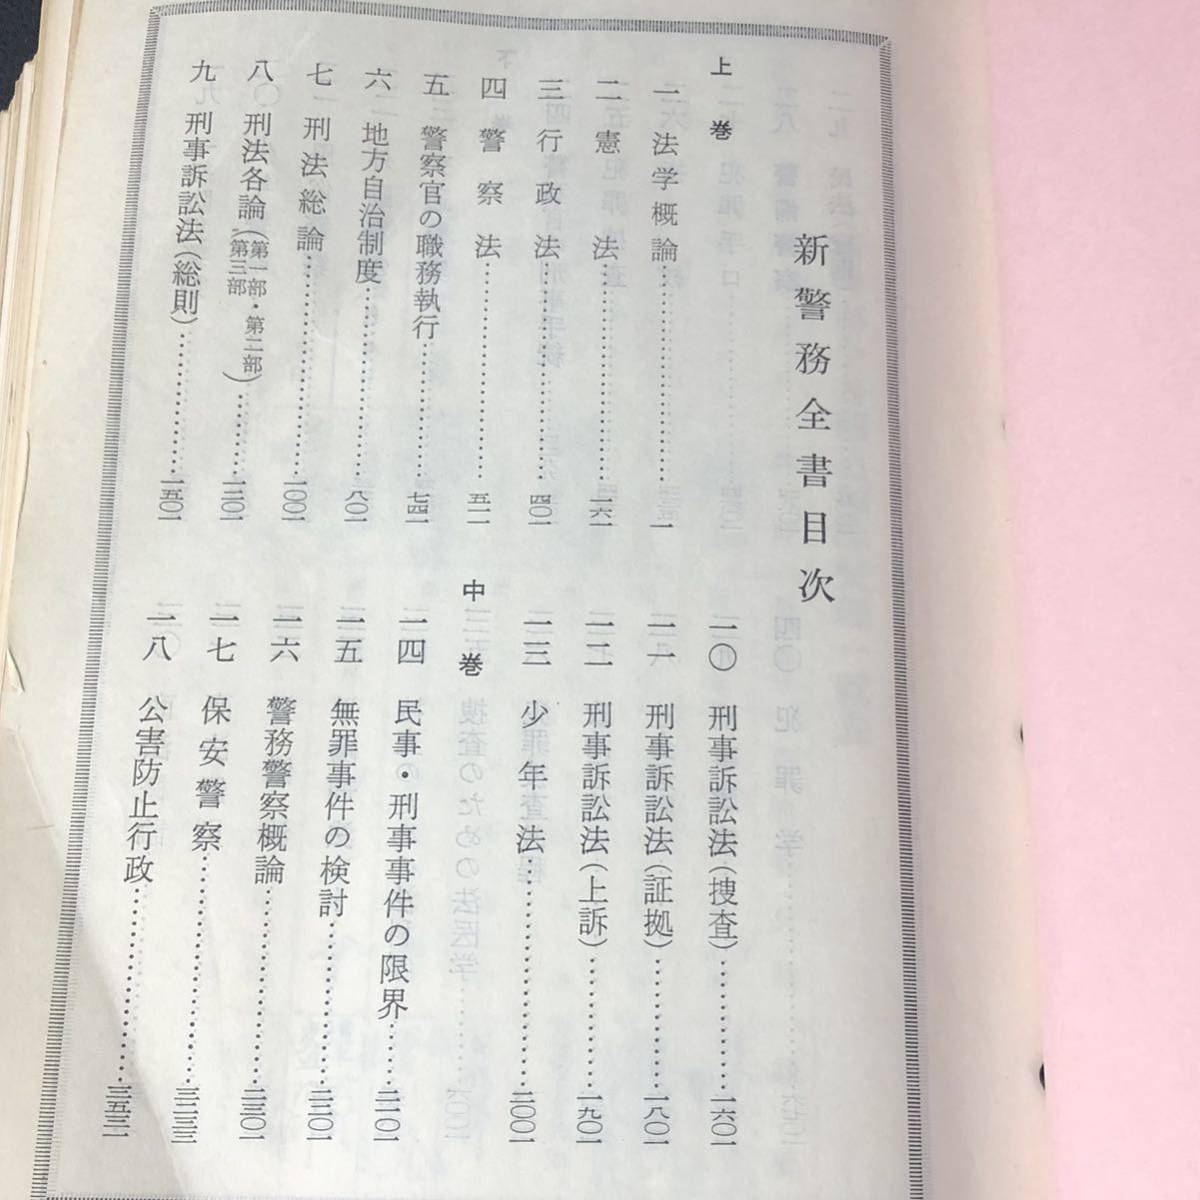 新警務全書目次
上巻
一 法学概論……一
二 憲法……一六一
三 行政法……四〇一
四 警察法……五一一
五 警察官の職務執行……七四一
六 地方自治制度……八〇一
七 刑法総論……一〇〇一
八 刑法各論(第一部・第二部第三部)……一二〇一
九 刑事訴訟法(総則)……一五〇一
一〇 刑事訴訟法(捜査)……一六〇一
一一 刑事訴訟法(証拠)……一八〇一
一二 刑事訴訟法(上訴)……一九〇一
一三 少年法……二〇〇一
中巻
一四 民事・刑事事件の限界……二一〇一
一五 無罪事件の検討……
一六 警務警察概論……
一七 保安警察……
一八 公害防止行政……